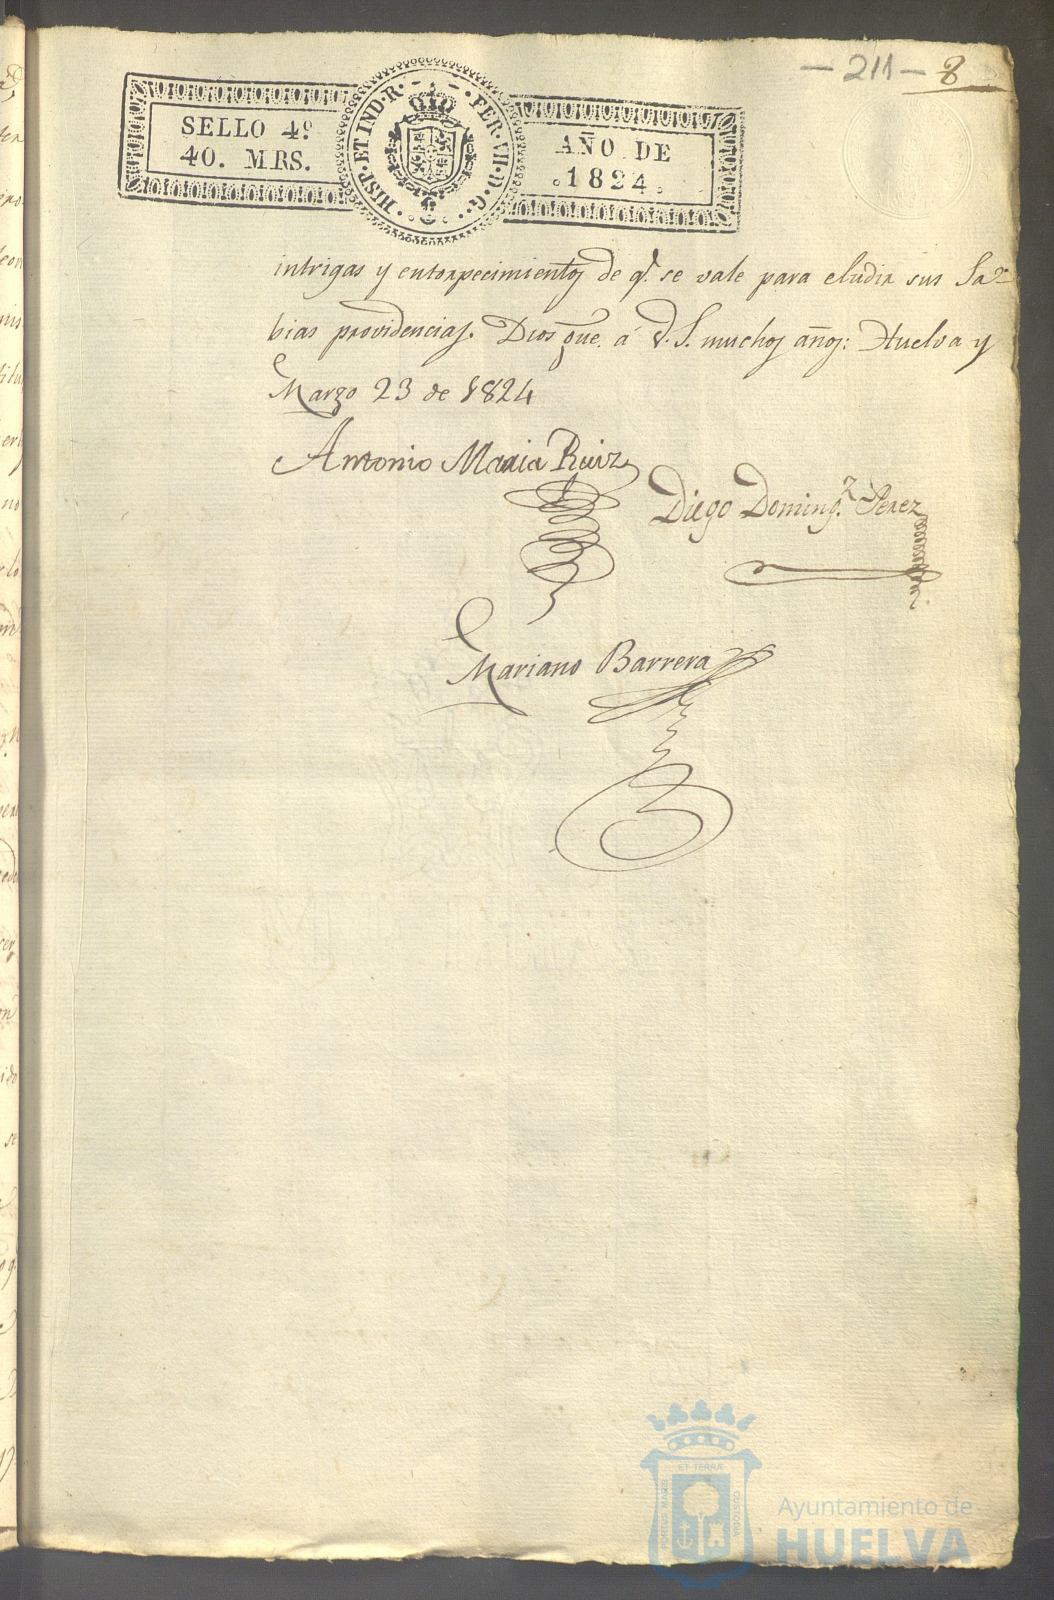 - 211 - 8
SELLO 4º
40. MRS.
HISP·ET IND·R· FER·VII·D·G·
AÑO DE
1824.
intrigas y entorpecimientos de q.e se vale para eludir sus Sa-
bias providencias. Dios gue. á V.S. muchos años: Huelva y
Marzo 23 de 1824
Antonio Maria Ruiz
Diego Doming.z Perez
Mariano Barrera
PORTUS MARIS ET TERRÆ CUSTODIA
Ayuntamiento de
HUELVA